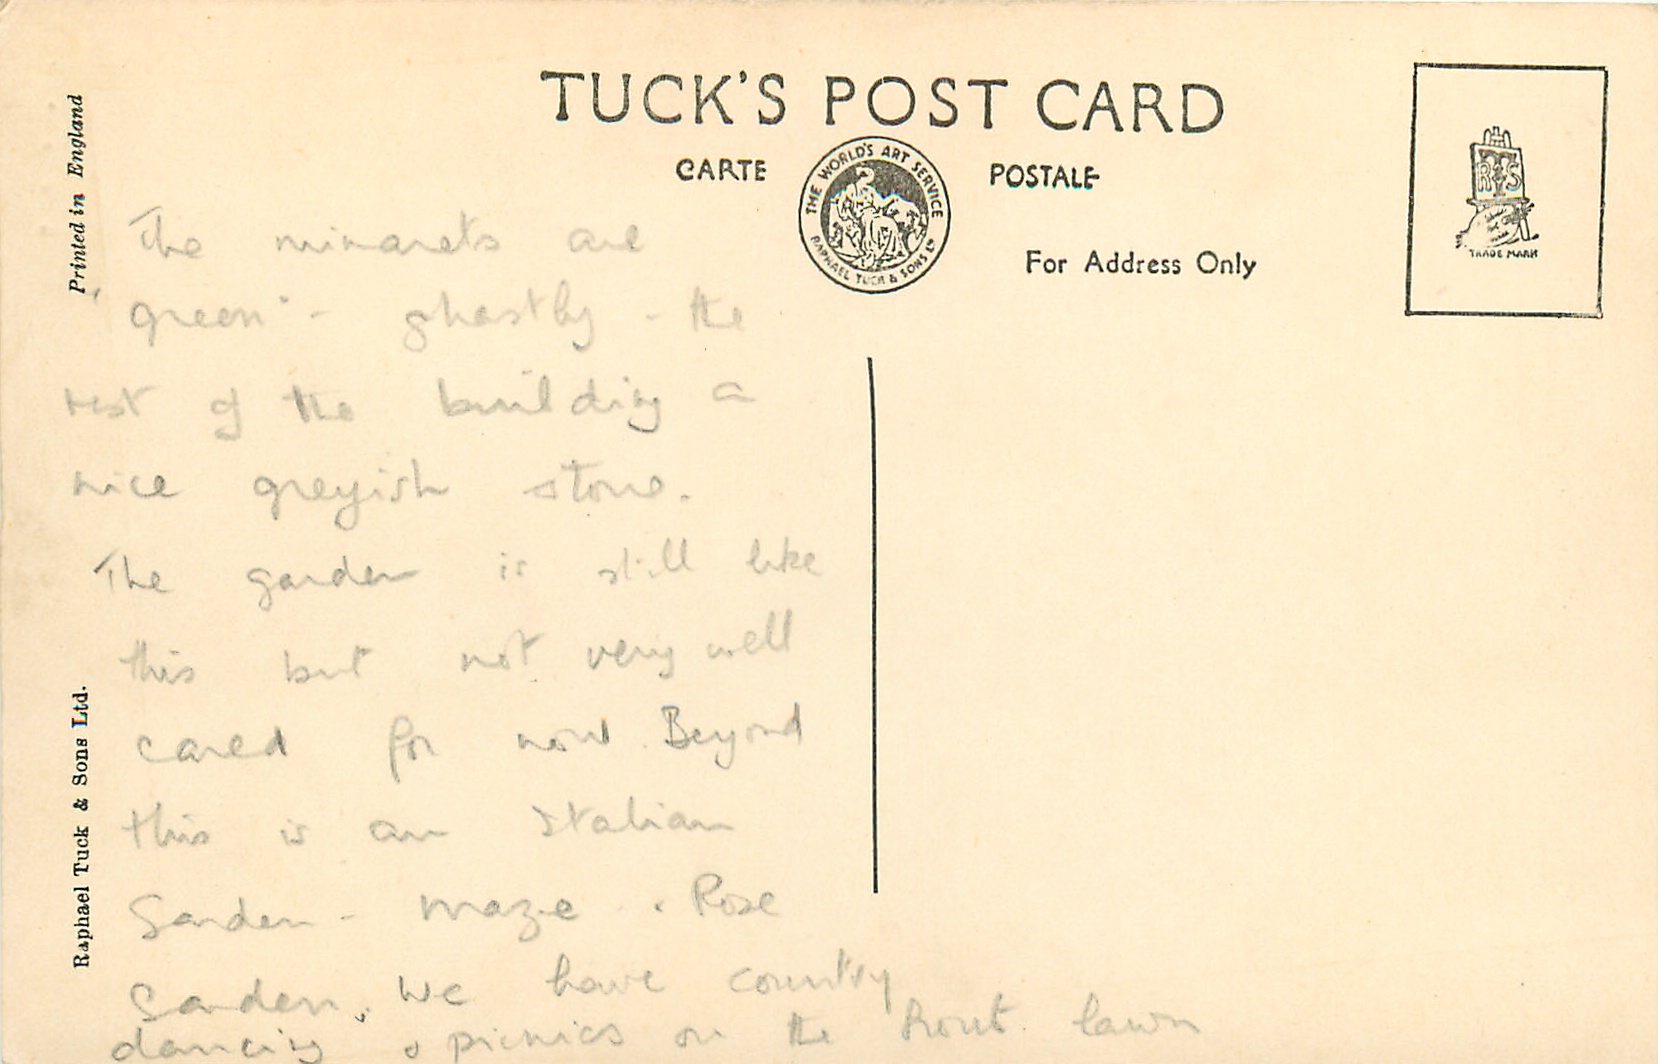 TUCK'S POST CARD
CARTE POSTALE
THE WORLD'S ART SERVICE
RAPHAEL TUCK & SONS LTD
For Address Only
RTS
TRADE MARK
Printed in England
Raphael Tuck & Sons Ltd.
The minarets are
"green" - ghastly - the
rest of the building a
nice greyish stone.
The garden is still like
this but not very well
cared for now. Beyond
this is an Italian
Garden - maze . Rose
Garden. We have country
dancing & picnics on the front lawn